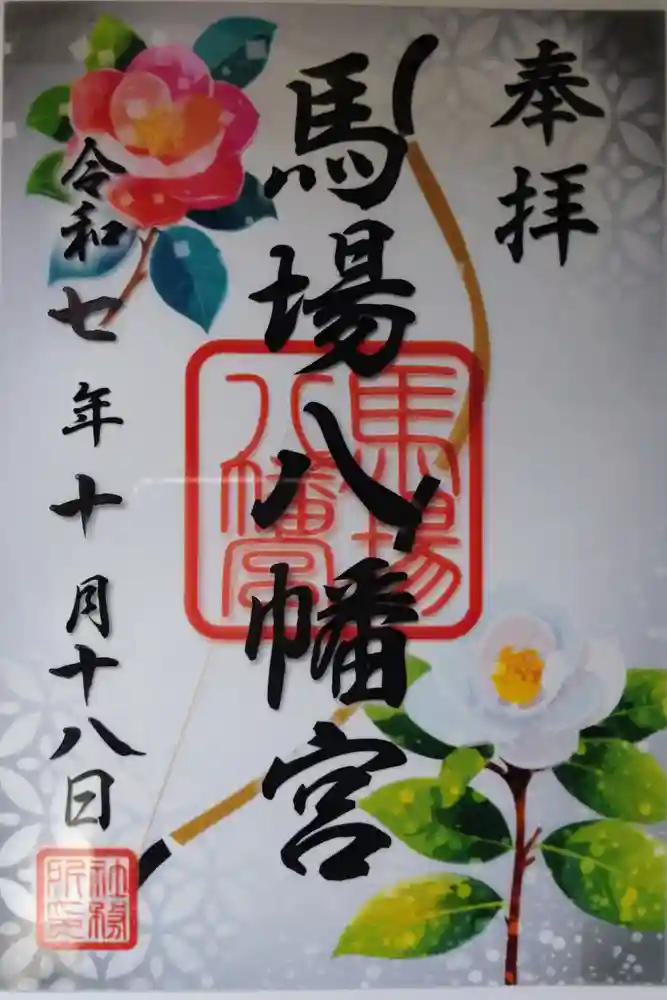 奉拝
馬場八幡宮
令和七年十月十八日
馬場
八幡宮
社務
所印